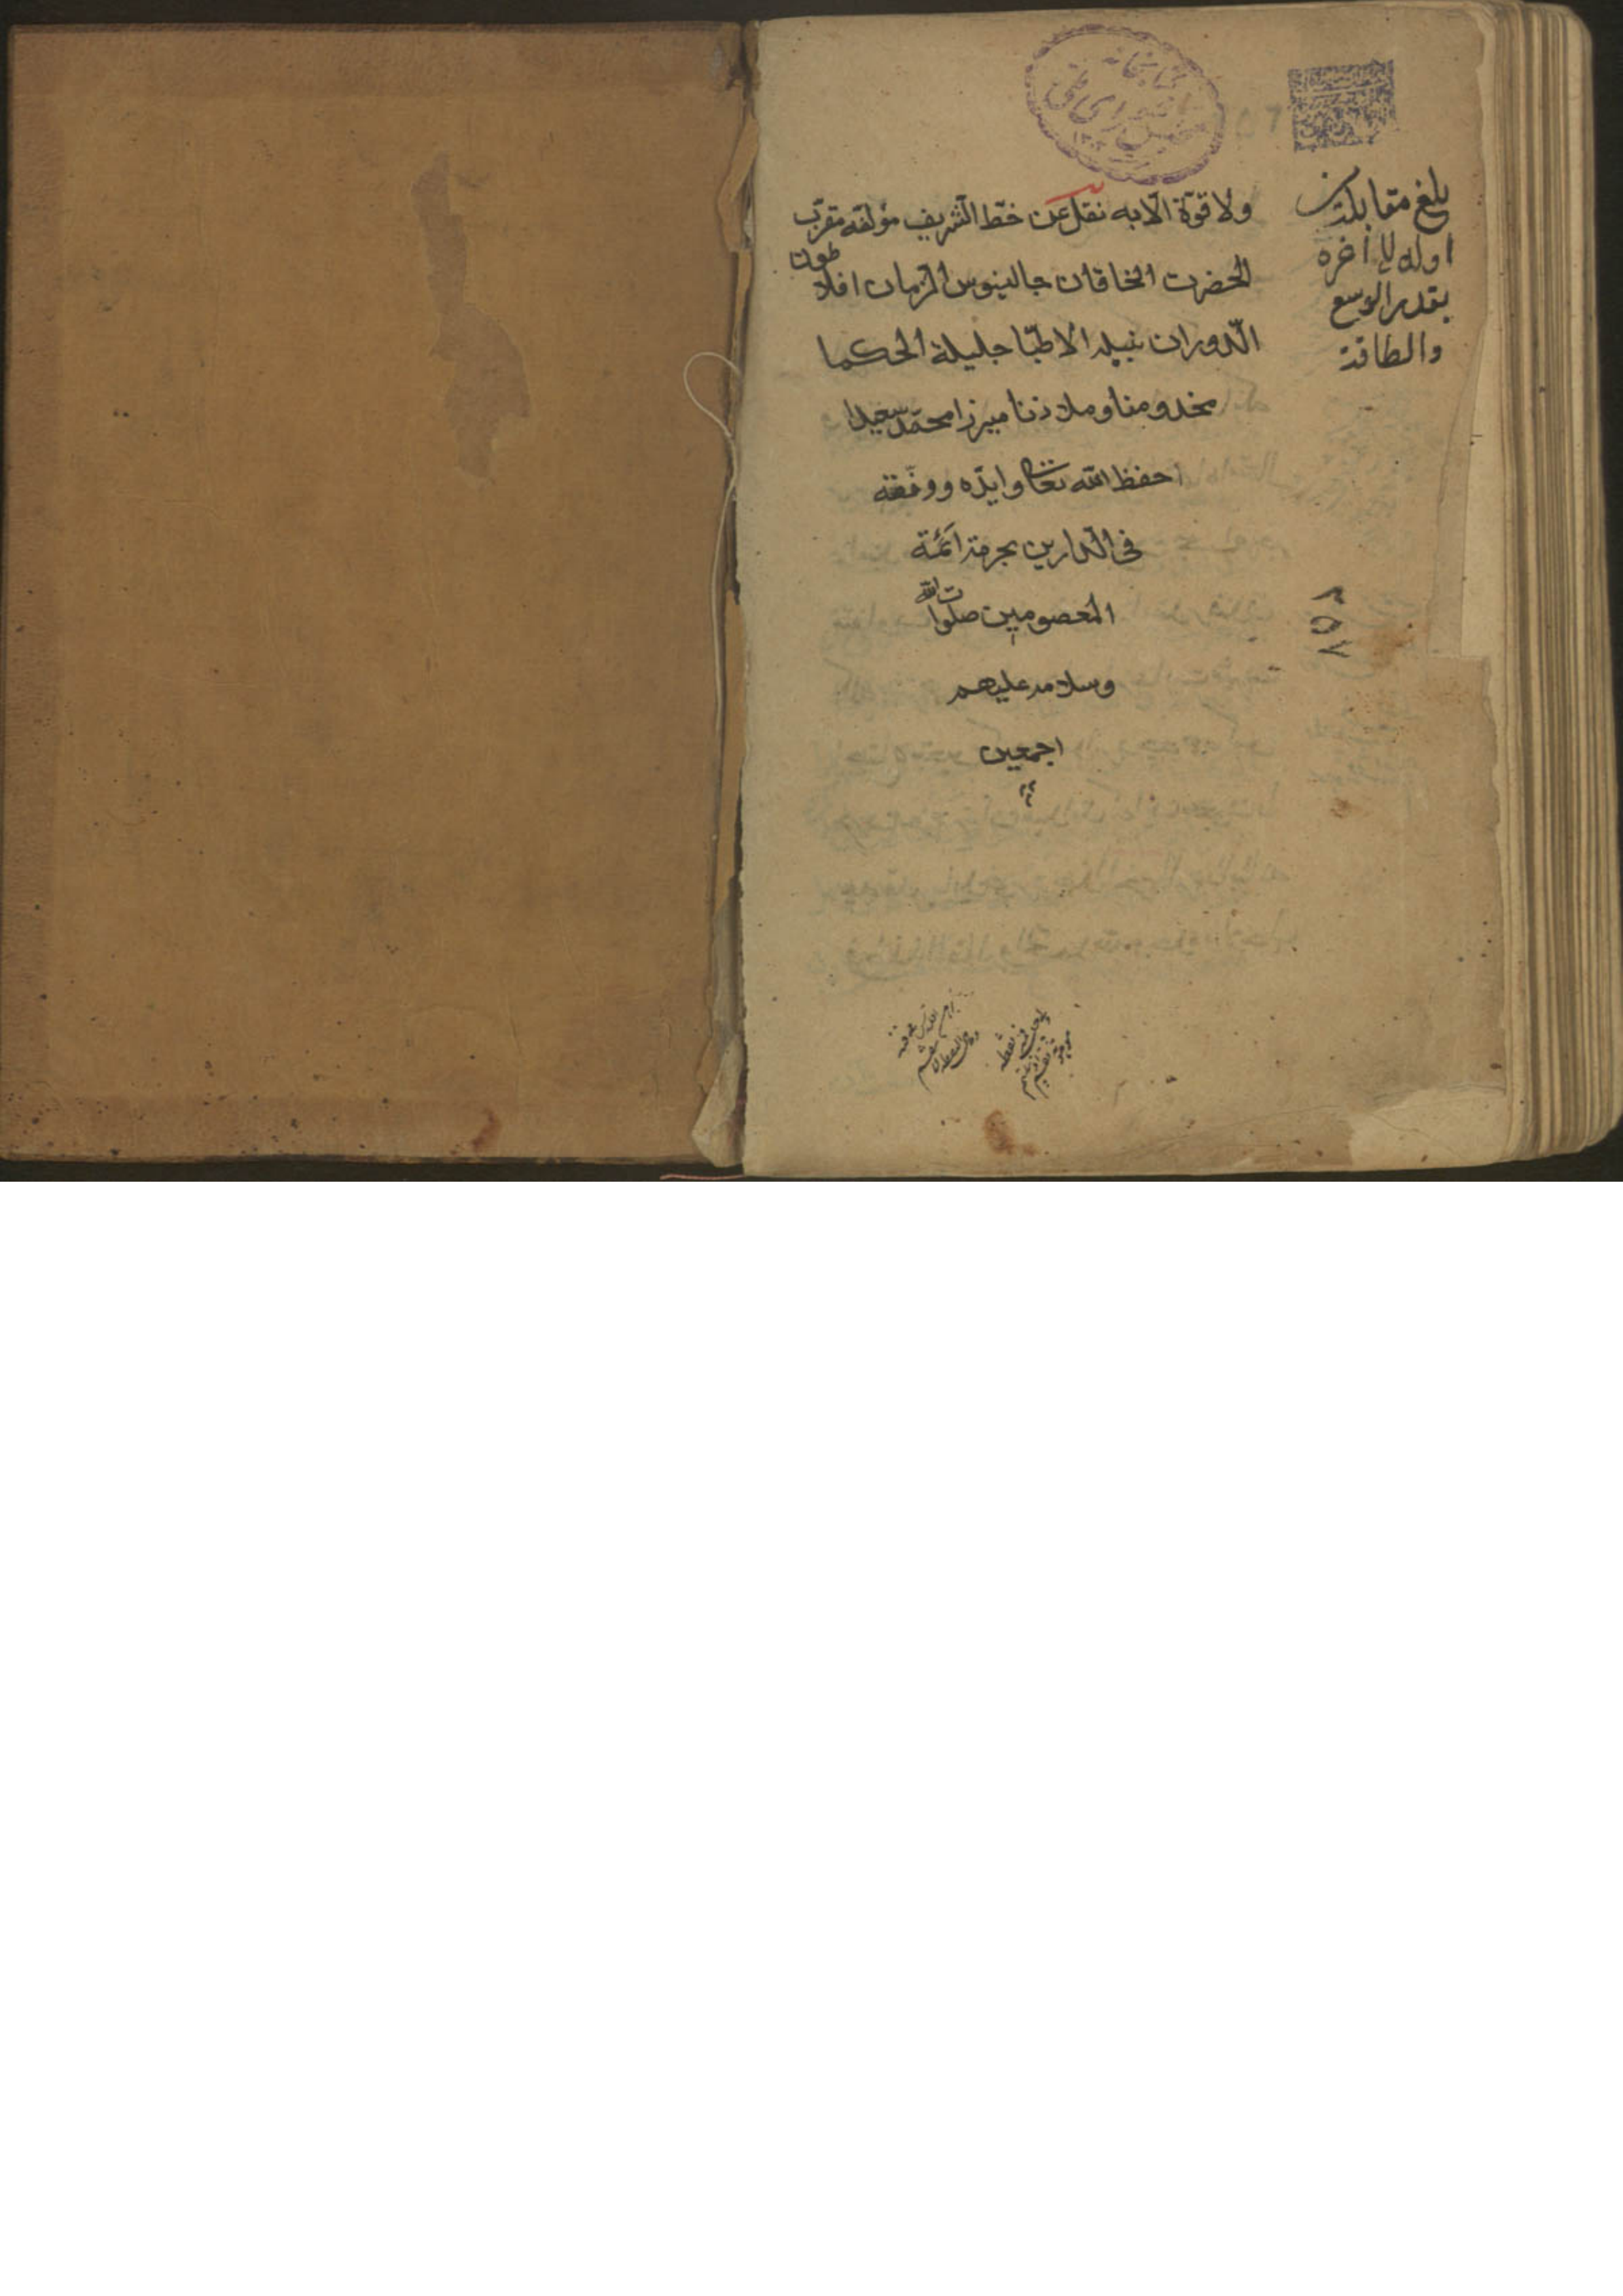 ولا قوة الّا به نقل عن خطّ الشّريف مؤلفه مقرّب
الحضرت الخاقان جالينوس الزمان افلاطون
الدّوران نبيله الاطبّا جليلة الحكما
مخدومنا وملاذنا ميرزا محمّد سعيدا
احفظ الله تعالى وايدّه ووفّقه
فى الدّارين بحرمة ائمّة
المعصومين صلوات الله
وسلامه عليهم
اجمعين
بلغ مقابلته من
اوله الى آخره
بقدر الوسع
والطاقة
٢٥٧
كتابخانه
مجلس شوراى ملى